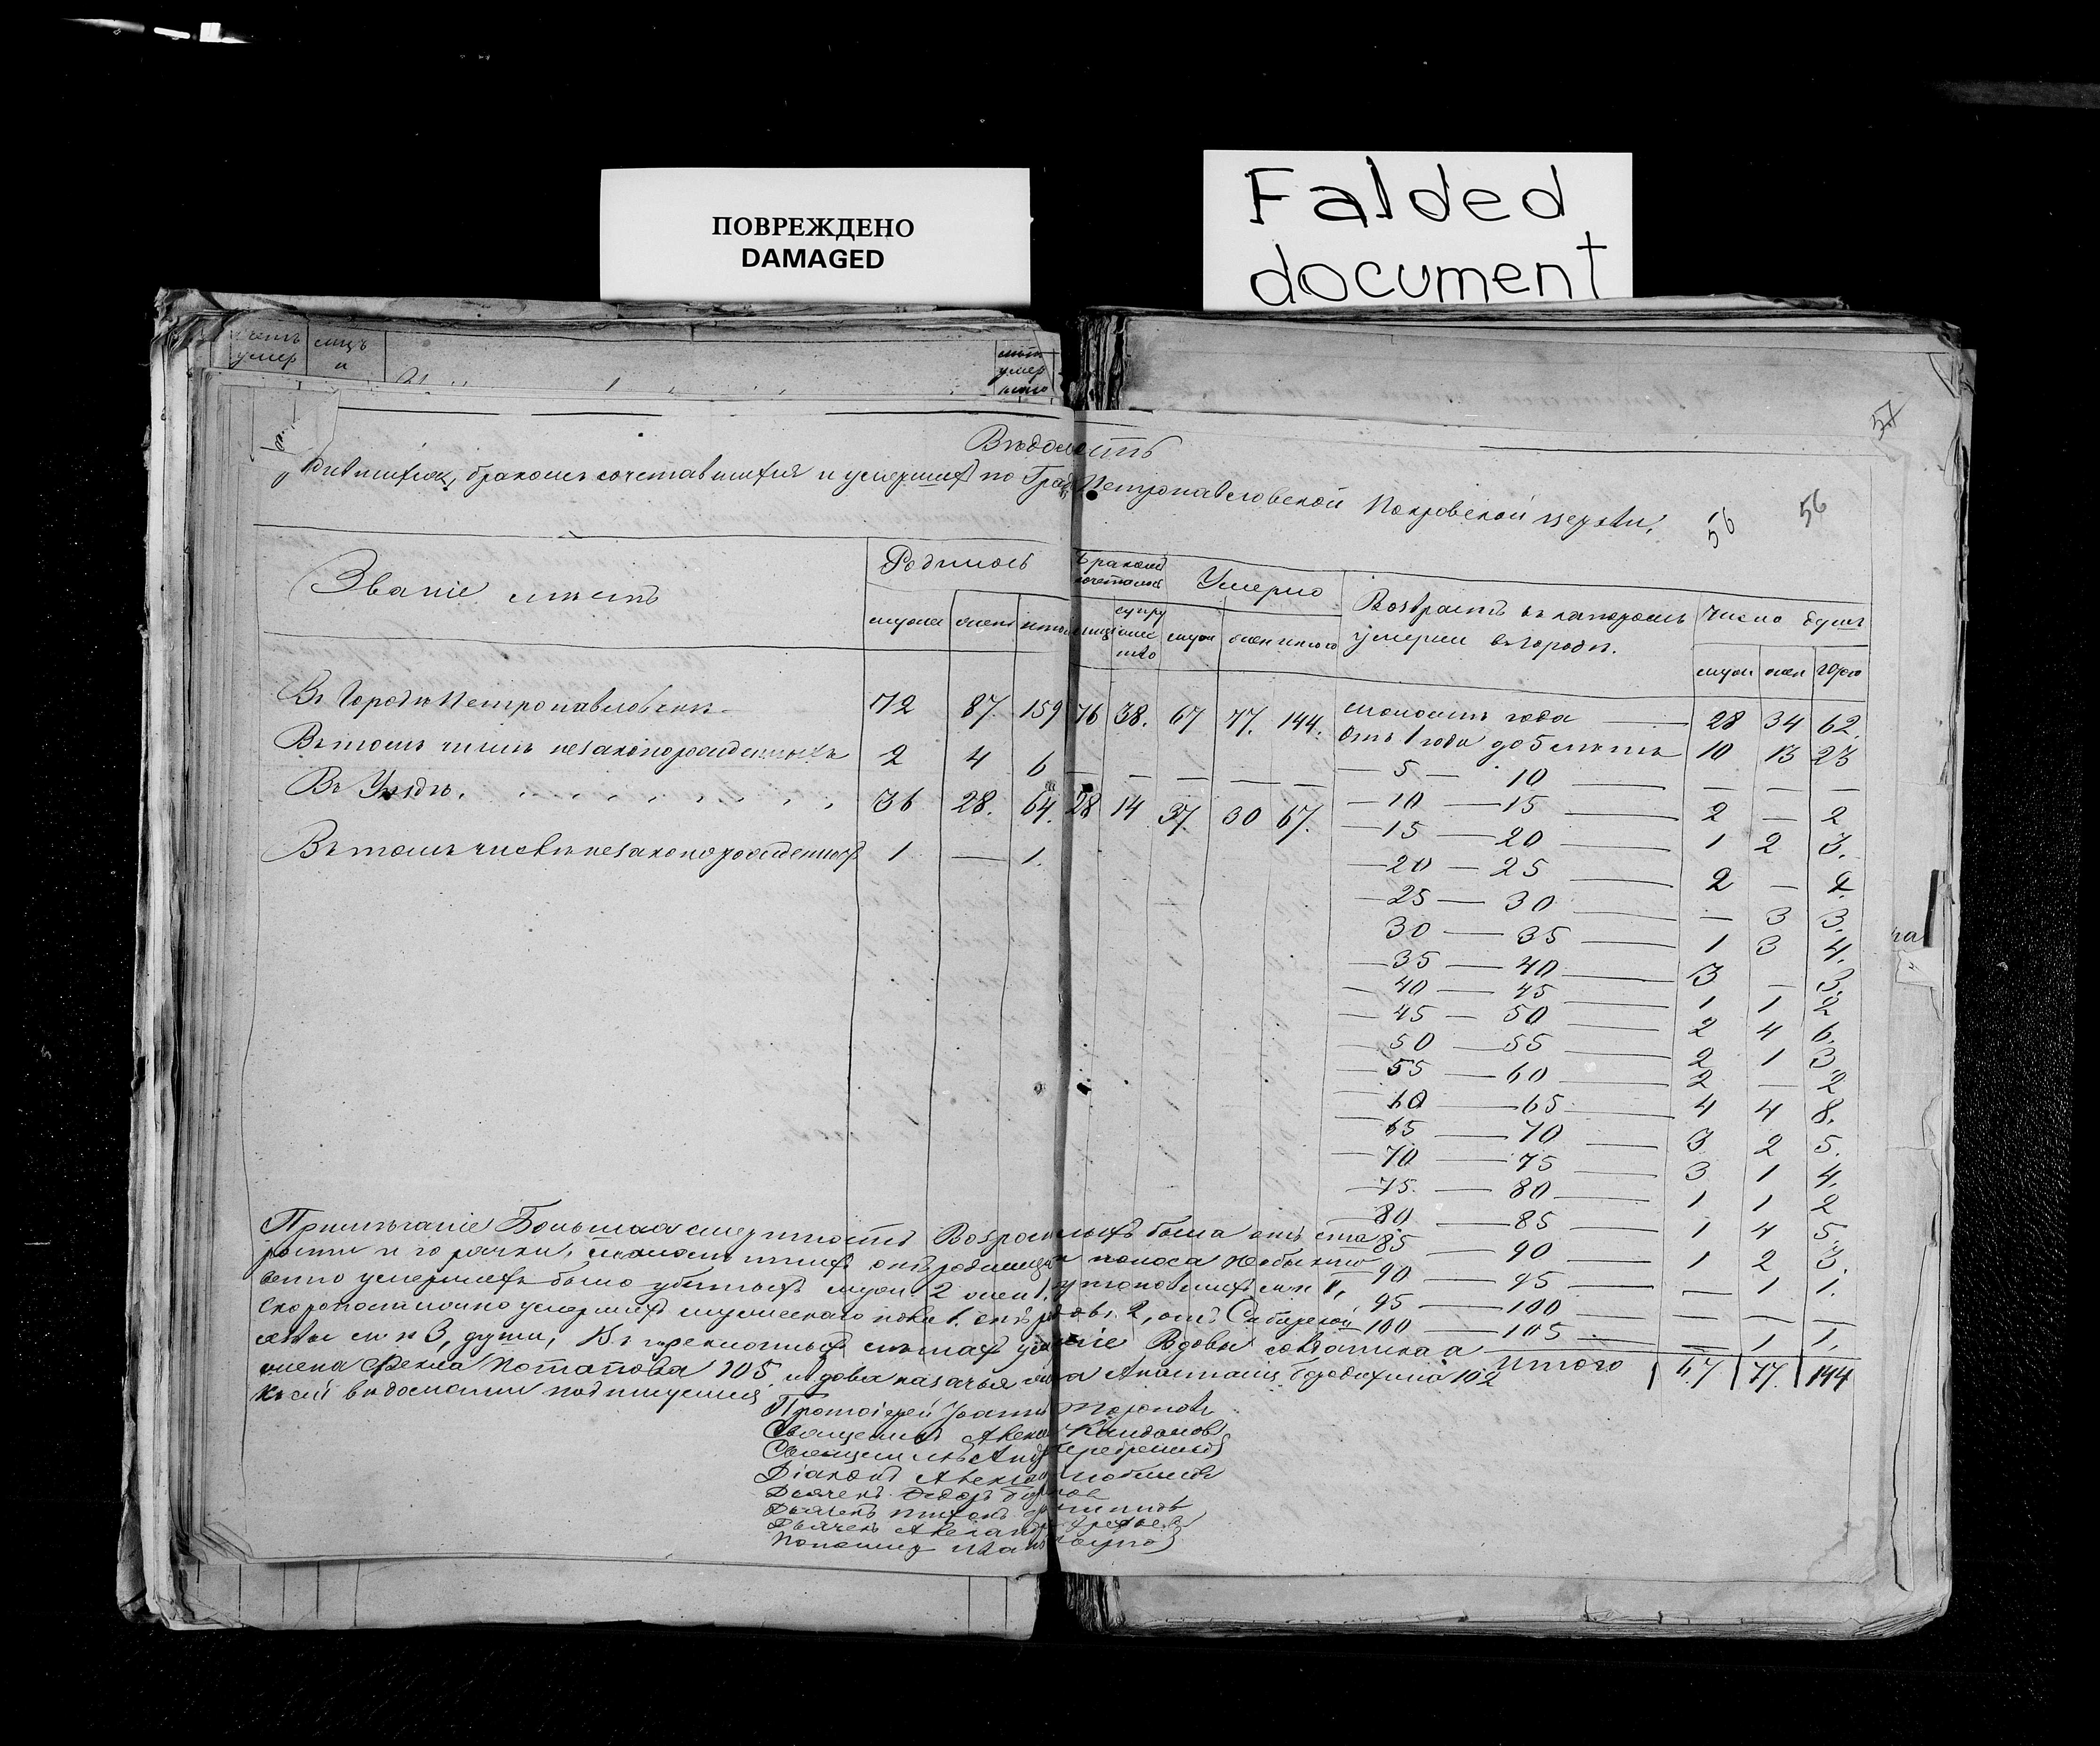 ПОВРЕЖДЕНО
DAMAGED
Falded
document
умер
лицъ
и
умер
57
Вѣдомость
бракомъ сочетавшихся и умершихъ по Град Петропавловской Покровской церкви,
56
56
Званіе мѣстъ
Родилось
Бракомъ сочеталось
Умерло
Возрастъ въ которомъ умерли въ городѣ.
Число душъ
мужеска женс итого лицъ супружество муж жен итого
муж жен Обоего
Въ Городѣ Петропавловскѣ 72 87. 159 76 38. 67 77. 144.
Въ томъ числѣ незаконорожденныхъ 2 4 6 — — — — —
Въ Уездѣ. 36 28. 64. 28 14 37. 30 67.
Въ томъ числѣ незаконорожденныхъ 1 — 1.
моложѣ года — 28 34 62.
Отъ 1 года до 5 лѣтъ 10 13 23
— 5 — 10 — — — —
— 10 — 15 — 2 — 2
— 15 — 20 — 1 2 3.
— 20 — 25 — 2 — 2.
— 25 — 30 — — 3 3.
30 — 35 — 1 3 4.
— 35 — 40 — 3 — 3.
— 40 — 45 — 1 1 2
— 45 — 50 — 2 4 6.
— 50 — 55 — 2 1 3.
— 55 — 60 — 2 — 2
— 60 — 65 — 4 4 8.
— 65 — 70 — 3 2 5.
— 70 — 75 — 3 1 4.
— 75. — 80 — 1 1 2
— 80 — 85 — 1 4 5.
— 85 — 90 — 1 2 3.
— 90 — 95 — — 1 1.
— 95 — 100 — — — —
— 100 — 105 — — 1 1.
Итого 67 77. 144
Примѣчаніе Большая смертность Возрослыхъ была отъ ста
рости и горячки, отъ родимца и поноса Необыкно
венно умершихъ было убитыхъ муж. 2 жен 1.
Скоропостижно умершихъ мужескаго пола 1. отъ 2, отъ Сибирской
язвы 3, души, Вдова солдатская
жена Фекла Потапова 105. и вдова казачья жена Анастасія 102
Къ сей вѣдомости подпишемся
Протоіерей Іоаннъ
Священникъ
Священникъ
Діаконъ
Дьячекъ Ѳедоръ
Дьячекъ
Дьячекъ
Пономарь Иванъ